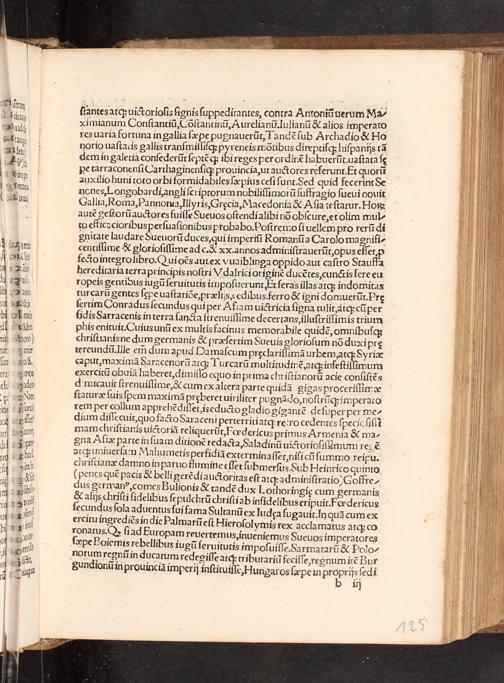 stantes atq; uictoriosis signis suppeditantes, contra Antoniũ uerum Ma/
ximianum Constantiũ, Cõstantinũ, Aurelianũ. Iulianũ & alios imperato
res uaria fortuna in gallia sæpe pugnauerũt, Tandẽ sub Archadio & Ho
norio uastatis gallis transmissisq; pyreneis mõtibus direptisq; hispanijs tã
dem in galetia consederũt septẽ q; ibi reges per ordinẽ habuerũt. uastata sę
pe tarraconensi Carthaginensiq; prouincia, ut auctores referunt. Et quorũ
auxilio huni toto orbi formidabiles sæpius cesi sunt. Sed quid fecerint Se
nones, Longobardi, angli scriptorum nobilissimorũ suffragio sueui nouit
Gallia, Roma, Pannonia, Illyris, Gręcia, Macedonia & Asia testatur. Horꝝ
autẽ gestorũ auctores fuisse Sueuos ostendi alibi nõ obscure, et olim mul/
to efficacioribus persuasionibus probabo. Postremo si uellem pro rerũ di
gnitate laudare Sueuorũ duces, qui imperiũ Romanũ a Carolo magnifi/
centissime & gloriosissime ad c. & xx. annos administrauerũt, opus esset, p
fecto integro libro. Qui oẽs aut ex vuaiblinga oppido aut castro Stauffa
hereditaria terra principis nostri Vdalrici originẽ ducẽtes, cunctis fere eu
ropeis gentibus iugũ seruitutis imposuerunt, Et feras illas atq; indomitas
turcarũ gentes sępe uastatiõe, prælijs, cedibus. ferro & igni domuerũt. Prę
sertim Conradus secundus qui per Asiam uictricia signa tulit, atq; cũ per
fidis Sarracenis in terra sancta strenuissime decertans, illustrissimis trium
phis enituit. Cuius unũ ex multis facinus memorabile quidẽ, omnibusq;
christianis ne dum germanis & præsertim Sueuis gloriosum nõ duxi prę
tereundũ. Ille em̃ dum apud Damascum pręclarissimã urbem, atq; Syriæ
caput, maximã Saracenorũ atq; Turcarũ multitudinẽ, atq; infestissimum
exercitũ obuiã haberet, dimisso equo in prima christianorũ acie consistẽs
dimicauit strenuissime, & cum ex altera parte quidã gigas procerissimæ
staturæ suis spem maximã pręberet uiriliter pugnãdo, nostrũq; imperato
rem per collum apprehẽdisset, is educto gladio gigantẽ desuper per me/
dium dissecuit, quo facto Saraceni perterriti atq; retrocedentes speciosissi
mam christianis uictoriã reliquerũt, Fœdericus primus Armenia & ma/
gna Asiæ parte in suam ditionẽ redacta, Saladinũ uictoriosissimum regẽ
atq; uniuersam Mahumetis perfidiã exterminasset, nisi cũ summo reipu.
christianæ damno in paruo flumine esset submersus. Sub Heinrico quinto
(penes quẽ pacis & belli gerẽdi auctoritas est atq; administratio) Goffre/
dus germanº, comes Bulionis & tandẽ dux Lothoringię cum germanis
& alijs christi fidelibus sepulchrũ christi ab infidelibus eripuit. Fœdericus
secundus sola aduentus sui fama Sultanũ ex Iudęa fugauit. In quã cum ex
ercitu ingrediẽs in die Palmarũ est Hierosolymis rex acclamatus atq; co
ronatus. Qꝫ si ad Europam reuertemus, inueniemus Sueuos imperatores
sæpe Boiemis rebellibus iugũ seruitutis imposuisse. Sarmatarũ & Polo/
norum regnũ in ducatum redegisse atq; tributariũ fecisse, regnum itẽ Bur
gundionũ in prouinciã imperij instituisse, Hungaros sæpe in proprijs sedi
b iij
125